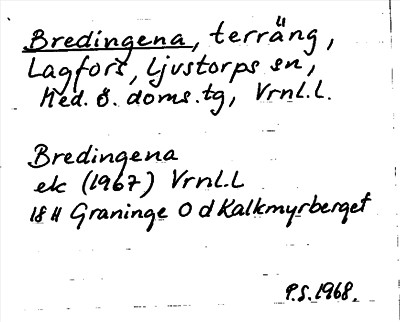 Bredingena, terräng,
Lagfors, Ljustorps sn,
Med. ö. doms.tg, Vrnl.L.
Bredingena
ek (1967) Vrnl.L
18 H Graninge O d Kalkmyrberget
P.S. 1968.